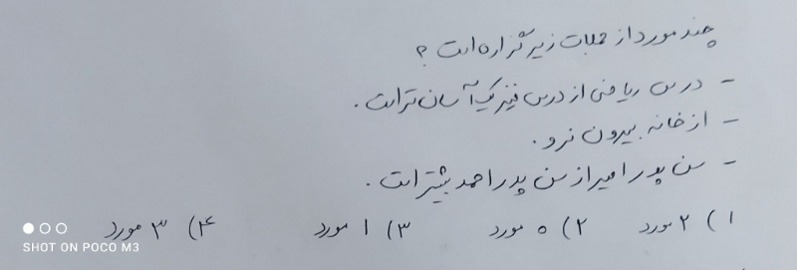 چند مورد از جملات زیر گزاره است ؟
- درس ریاضی از درس فیزیک آسان تر است .
- از خانه بیرون نرو .
- سن پدر امیر از سن پدر احمد بیشتر است .
۱) ۲ مورد ۲) ۰ مورد ۳) ۱ مورد ۴) ۳ مورد
SHOT ON POCO M3